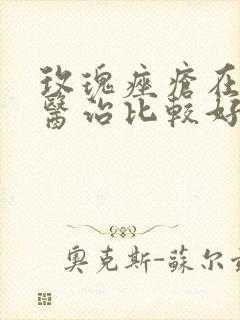 玫瑰痤瘡在
醫治比較好
奧克斯-蘇尔